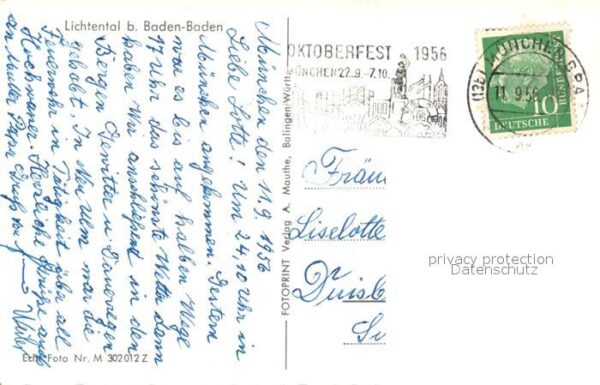 Lichtental b. Baden-Baden
München den 11.9.1956
Liebe Lotte! Um 24,10 Uhr in
München angekommen. Gestern
war es bis auf halben Wege
17 Uhr das schönste Wetter dann
haben wir anschließend in den
Bergen Gewitter u. Dauerregen
gehabt. In Neu Ulm war die
Feuerwehr in Tätigkeit über all
Hochwasser. Herzliche Grüße auch
an Mutter Papa Gruß von
Echt Foto Nr. M 302012 Z
FOTOPRINT Verlag A. Mauthe, Balingen-Württ
OKTOBERFEST 1956
MÜNCHEN 22.9.-7.10.
(13b) MÜNCHEN BPA
11.9.56
10
DEUTSCHE
BUNDESPOST
Fräu
Liselotte
Duisb
privacy protection
Datenschutz